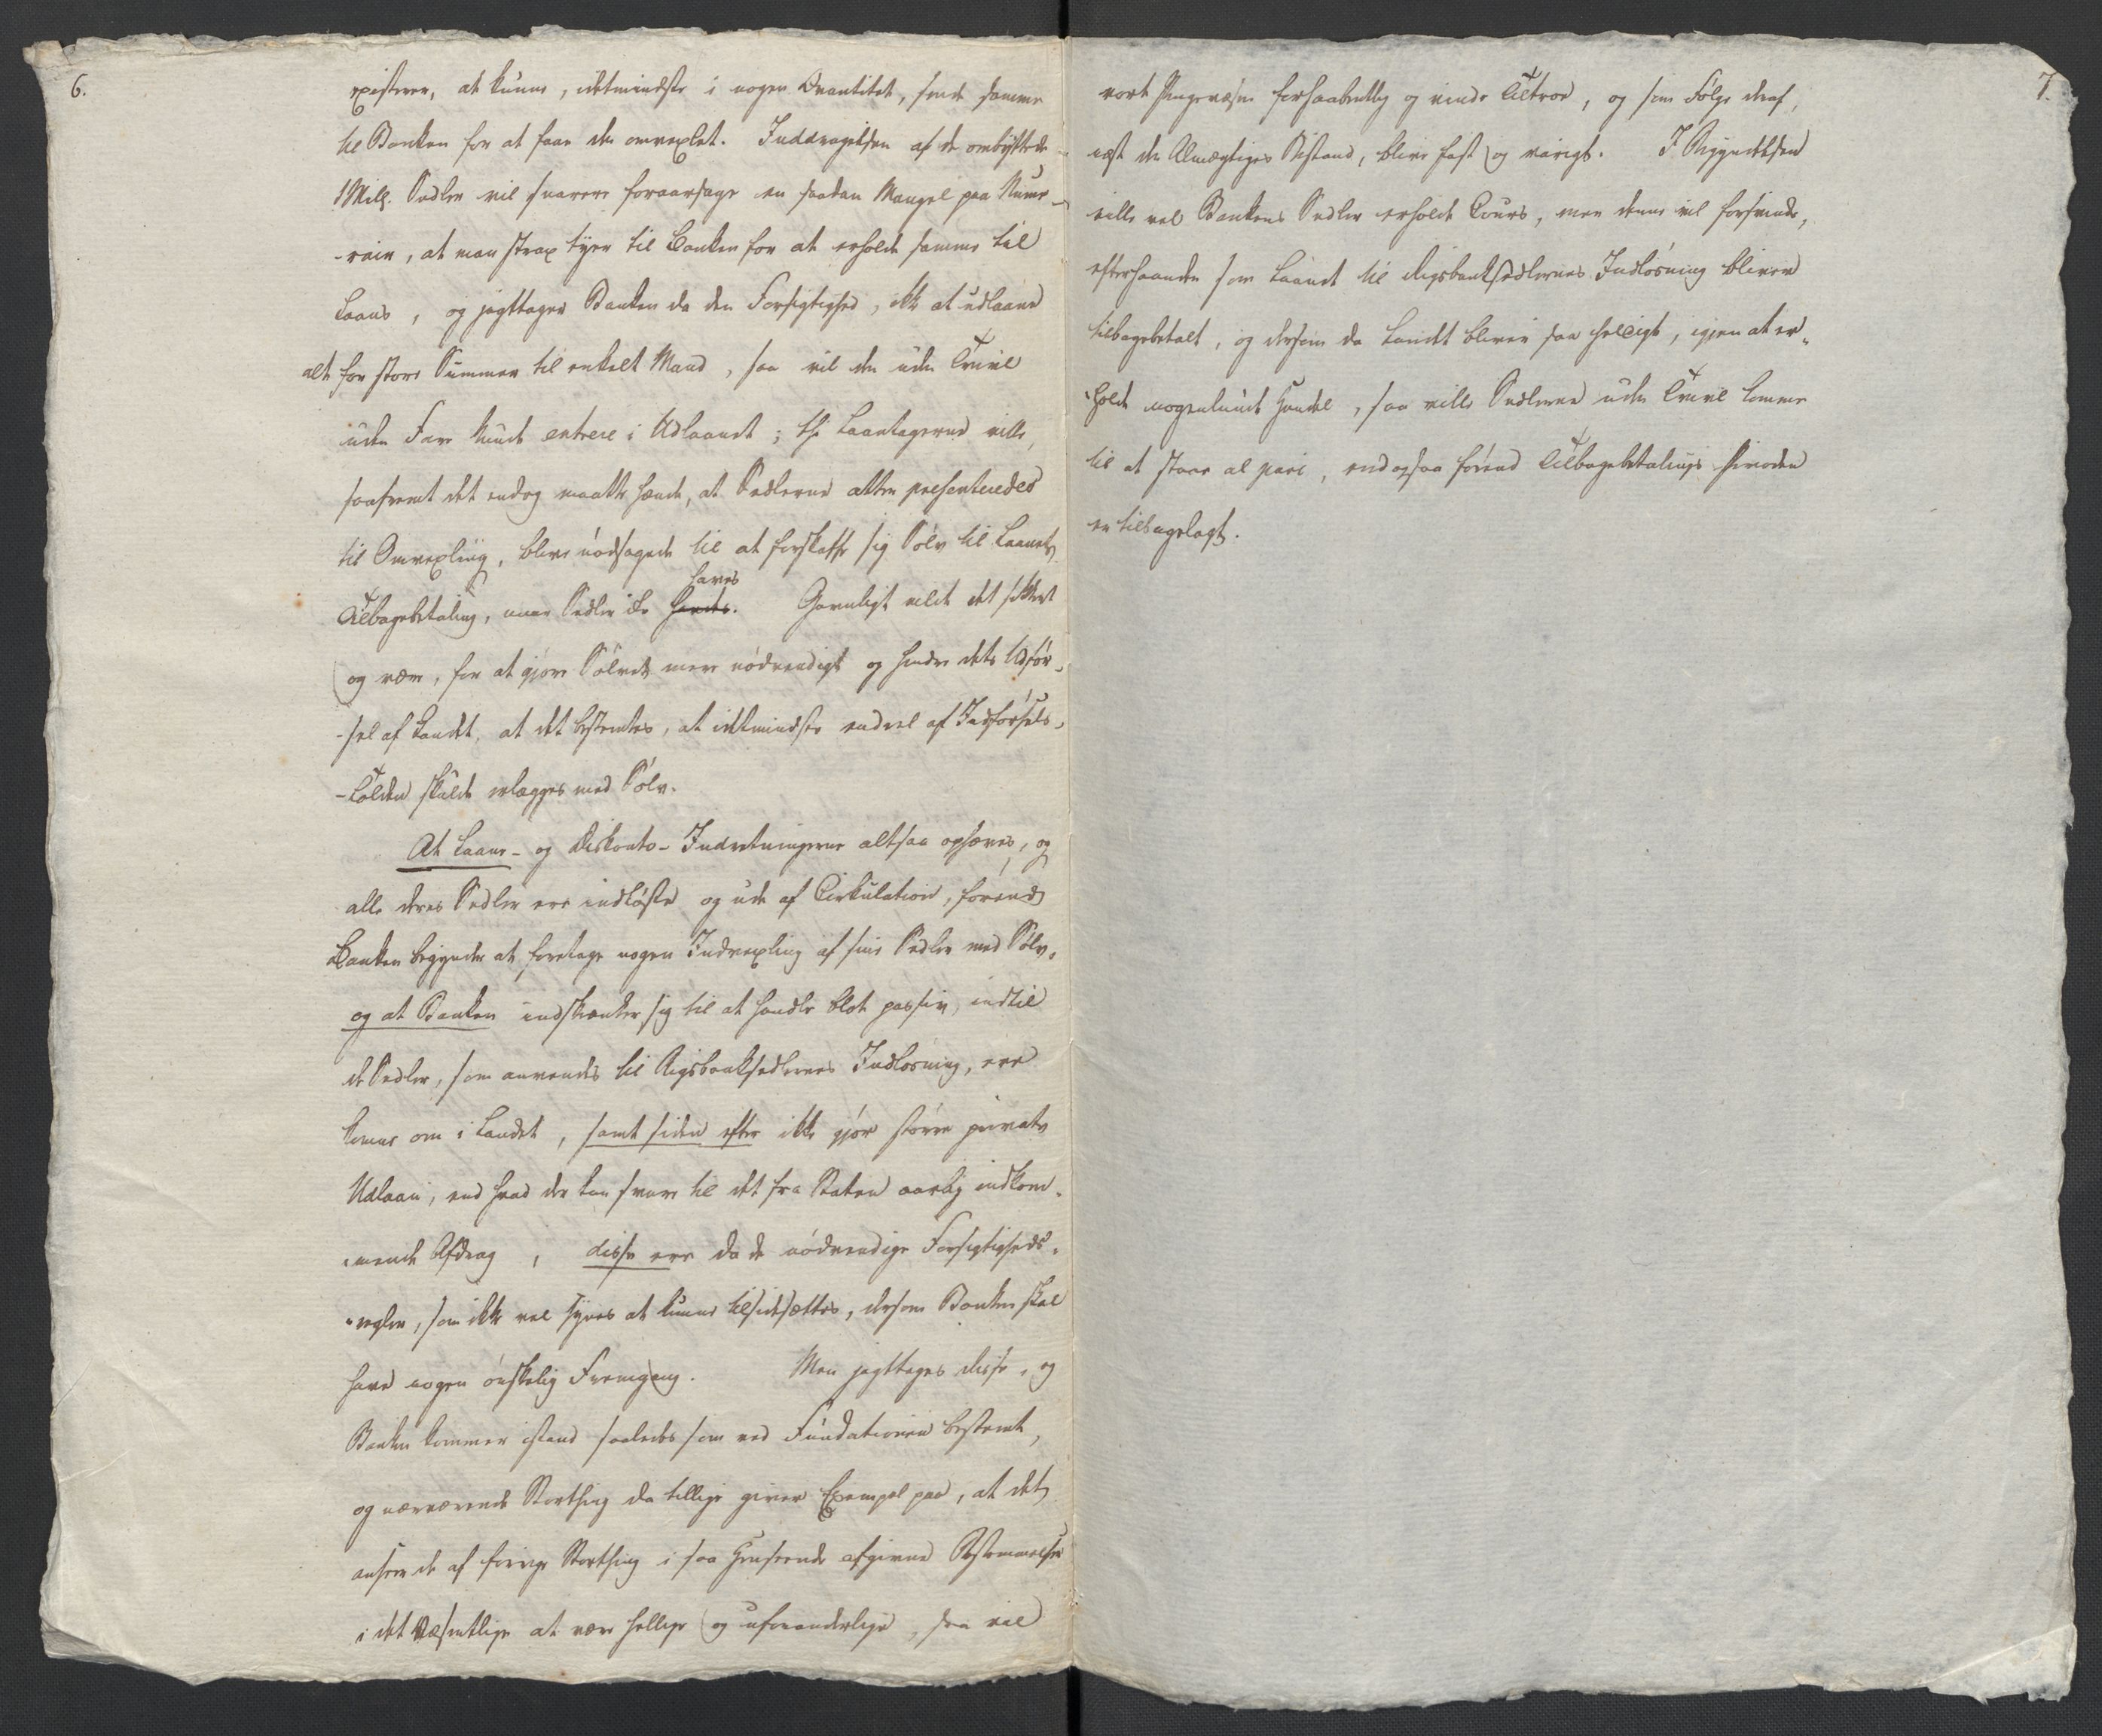 6.
existerer, at kunne, idetmindste i nogen Qvantitet, sende samme
til Banken for at faae den omvexlet. Inddragelsen af de ombyttede
1 Mill. Sedler vil snarere foraarsage en saadan Mangel paa Nume-
-raire, at man strax tyer til Banken for at erholde samme til
Laans, og jagttager Banken da den Forsigtighed, ikke at udlaane
alt for store Summer til enkelt Mand, saa vil den uden Tvivl
uden Fare kunde entrere i Udlaanet; thi Laantagerne ville,
saafremt det endog maatte hænde, at Sedlerne atter presenteredes
til Omvexling, blive nødsagede til at forskaffe sig Sølv til Laanets
Tilbagebetaling, naar Sedler ikke haves. Gavnligt vilde det sikkert
og være, for at gjøre Sølvet mere nødvendigt og hindre dets Udfør-
-sel af Landet, at det bestemtes, at idetmindste endeel af Indførsels-
-Tolden skulde erlægges med Sølv.
At Laane- og Diskonto-Indretningerne altsaa ophæves, og
alle deres Sedler ere indløste og ude af Cirkulation, førend
Banken begynder at foretage nogen Indvexling af sine Sedler med Sølv,
og at Banken indskrænker sig til at handle blot passiv, indtil
de Sedler, som anvendes til Rigsbanksedlernes Indløsning, ere
komne om i Landet, samt siden efter ikke gjør større private
Udlaan, end hvad der kan svare til det fra Staten aarlig indkom-
-mende Afdrag, disse ere da de nødvendige Forsigtigheds-
-regler, som ikke vel synes at kunne tilsidesættes, dersom Banken skal
have nogen ønskelig Fremgang. Men jagttages disse, og
Banken kommer istand saaledes som ved Fundationen bestemt,
og nærværende Storthing da tillige giver Exempel paa, at det
anseer de af forrige Storthing i saa Henseende afgivne Bestemmelser
i det Væsentlige at være hellige og uforanderlige, saa vil
7.
vort Pengevæsen forhaabentlig og vinde Tiltroe, og som Følge deraf,
næst den Almægtiges Bistand, blive fast og varigt. I Begyndelsen
ville vel Bankens Sedler erholde Cours, men denne vil forsvinde,
efterhaanden som Laanet til Rigsbanksedlernes Indløsning bliver
tilbagebetalt, og dersom da Landet bliver saa heldigt, igjen at er-
-holde nogenlunde Handel, saa ville Sedlerne uden Tvivl komme
til at staae al pari, endogsaa førend Tilbagebetalings Perioden
er tilbagelagt.